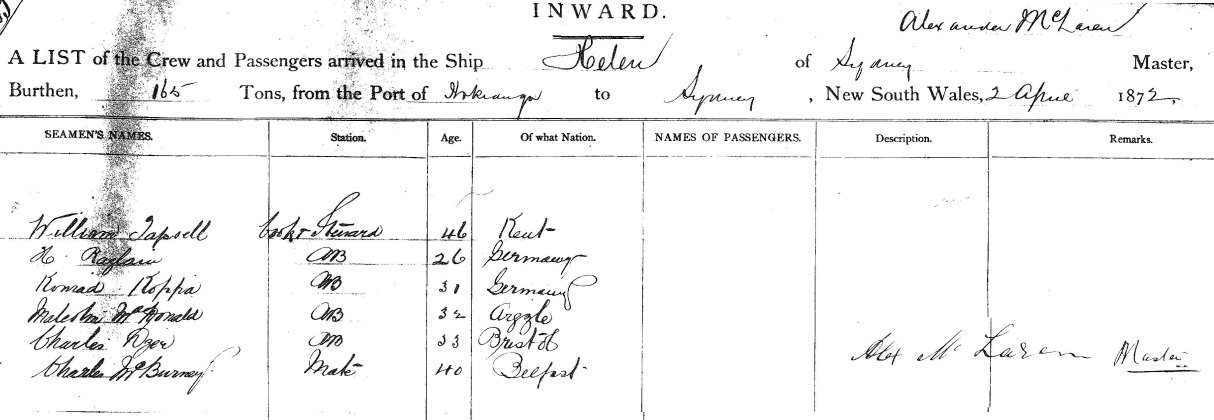 INWARD.
Alexander McLaren
A LIST of the Crew and Passengers arrived in the Ship Helen of Sydney Master,
Burthen, 165 Tons, from the Port of Hokianga to Sydney, New South Wales, 2 April 1872,
SEAMEN'S NAMES. Station. Age. Of what Nation. NAMES OF PASSENGERS. Description. Remarks.
William Tapsell Cook & Steward 46 Kent
H. AB 26 Germany
Konrad Koppa AB 31 Germany
Malcolm McDonald AB 32 Argyle
Charles Dyer AB 33 Bristol
Alex McLaren Master
Charles McBurney Mate 40 Belfast